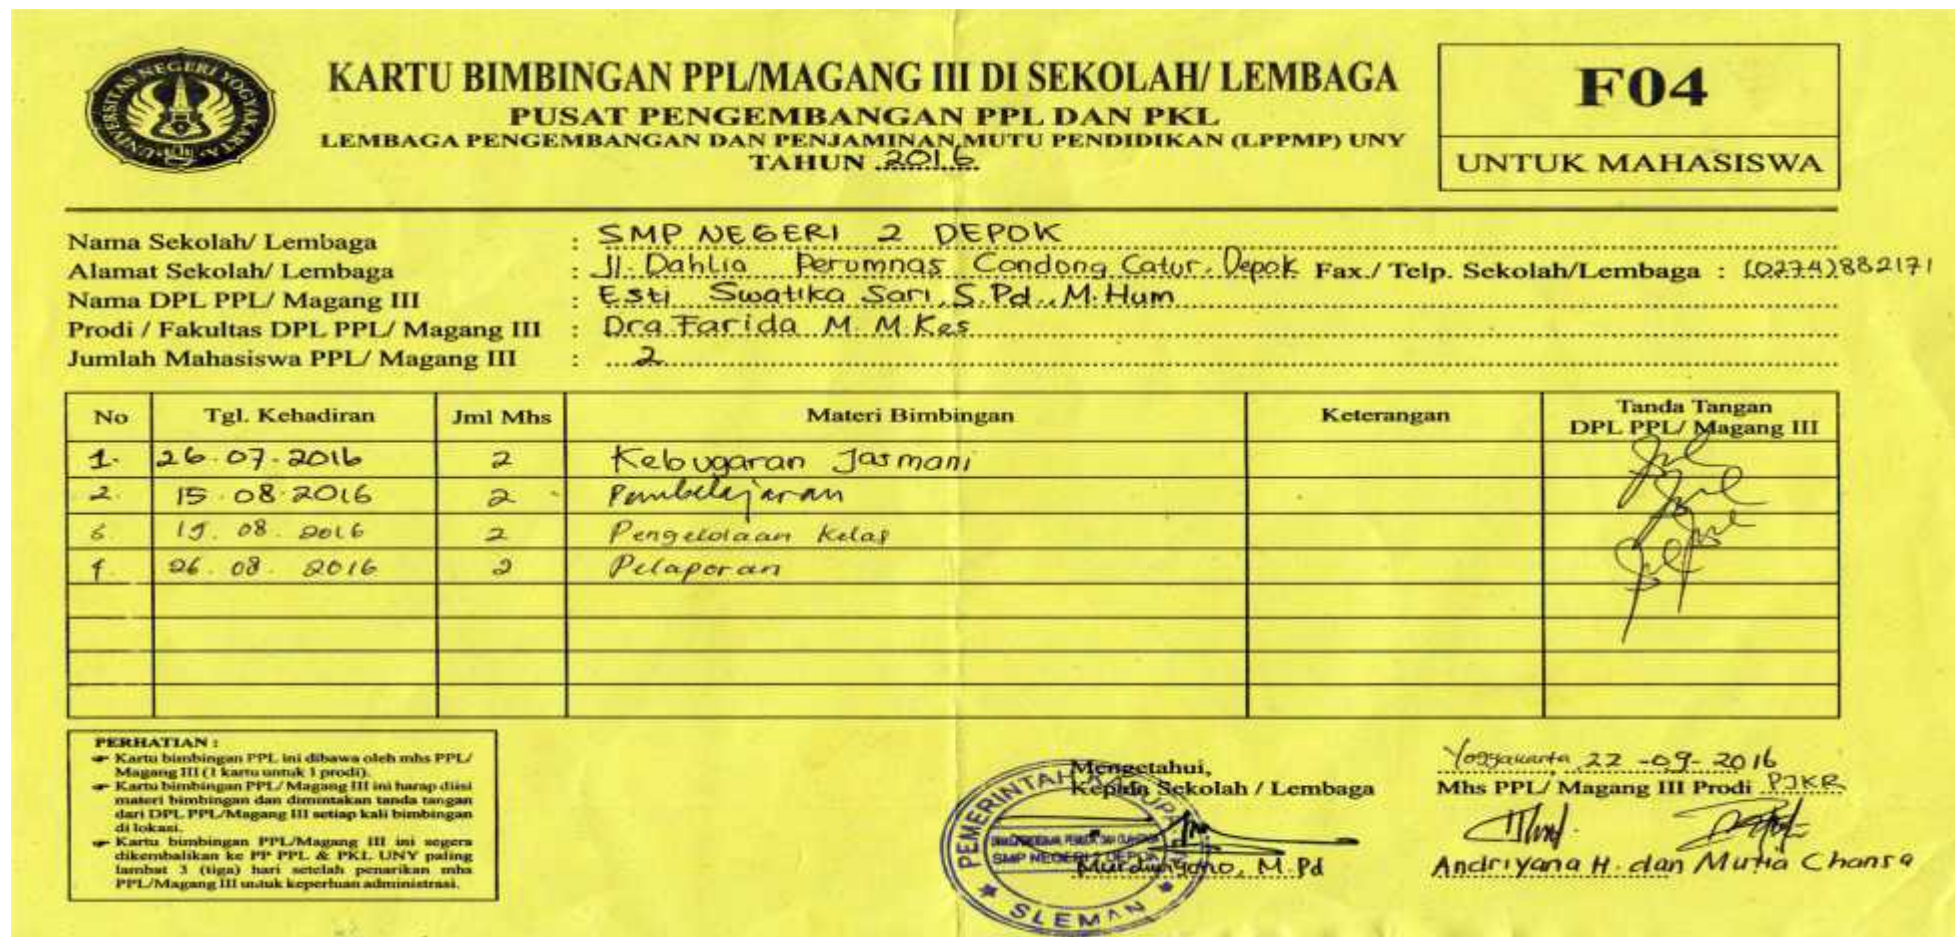 UNIVERSITAS NEGERI YOGYAKARTA
KARTU BIMBINGAN PPL/MAGANG III DI SEKOLAH/ LEMBAGA
PUSAT PENGEMBANGAN PPL DAN PKL
LEMBAGA PENGEMBANGAN DAN PENJAMINAN MUTU PENDIDIKAN (LPPMP) UNY
TAHUN 2016
F04
UNTUK MAHASISWA
Nama Sekolah/ Lembaga : SMP NEGERI 2 DEPOK
Alamat Sekolah/ Lembaga : Jl. Dahlia Perumnas Condong Catur. Depok Fax./ Telp. Sekolah/Lembaga : (0274)882171
Nama DPL PPL/ Magang III : Esti Swatika Sari, S.Pd., M.Hum
Prodi / Fakultas DPL PPL/ Magang III : Dra Farida M. M.Kes
Jumlah Mahasiswa PPL/ Magang III : 2
No Tgl. Kehadiran Jml Mhs Materi Bimbingan Keterangan Tanda Tangan DPL PPL/ Magang III
1. 26.07.2016 2 Kebugaran Jasmani
2. 15.08.2016 2 Pembelajaran
3. 19. 08. 2016 2 Pengelolaan Kelas
4. 26. 08. 2016 2 Pelaporan
PERHATIAN :
☞ Kartu bimbingan PPL ini dibawa oleh mhs PPL/
Magang III (1 kartu untuk 1 prodi).
☞ Kartu bimbingan PPL/ Magang III ini harap diisi
materi bimbingan dan dimintakan tanda tangan
dari DPL PPL/Magang III setiap kali bimbingan
di lokasi.
☞ Kartu bimbingan PPL/Magang III ini segera
dikembalikan ke PP PPL & PKL UNY paling
lambat 3 (tiga) hari setelah penarikan mhs
PPL/Magang III untuk keperluan administrasi.
Mengetahui,
Kepala Sekolah / Lembaga
PEMERINTAH KABUPA
SMP NEGERI 2 DEPOK
SLEMAN
Murdiwiyono, M.Pd
Yogyakarta, 22 -09- 2016
Mhs PPL/ Magang III Prodi PJKR
Andriyana H. dan Mutia Chansa